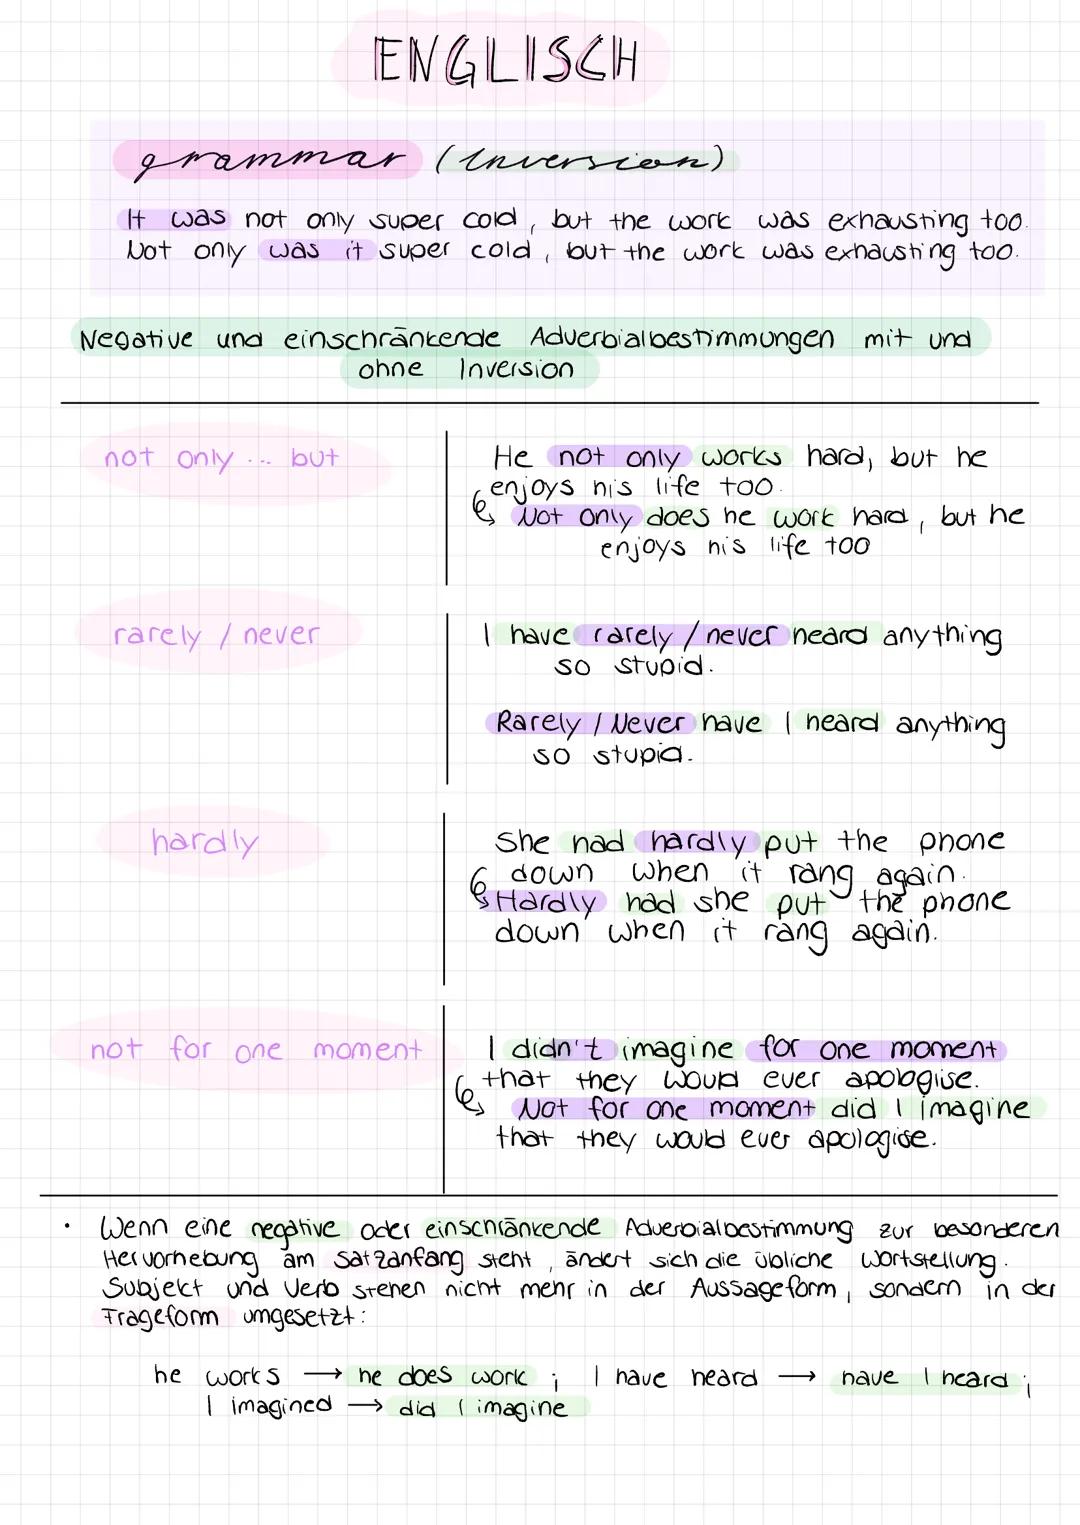 ENGLISCH
grammar (Inversion)
It was not only super cold, but the work was exhausting too.
Not only was it super cold, but the work was exhausting too.
Negative und einschränkende Adverbialbestimmungen mit und
ohne Inversion
not only ... but
He not only works hard, but he
enjoys his life too.
Not only does he work hard, but he
enjoys his life too
rarely / never
I have rarely / never heard anything
so stupid.
Rarely / Never have I heard anything
so stupid.
hardly
She had hardly put the phone
down when it rang again.
Hardly had she put the phone
down when it rang again.
not for one moment
I didn't imagine for one moment
that they would ever apologise.
Not for one moment did I imagine
that they would ever apologise.
• Wenn eine negative oder einschränkende Adverbialbestimmung zur besonderen
Hervorhebung am Satzanfang steht, ändert sich die übliche Wortstellung.
Subjekt und Verb stehen nicht mehr in der Aussageform, sondern in der
Frageform umgesetzt:
he works → he does work ; I have heard → have I heard ;
I imagined → did I imagine